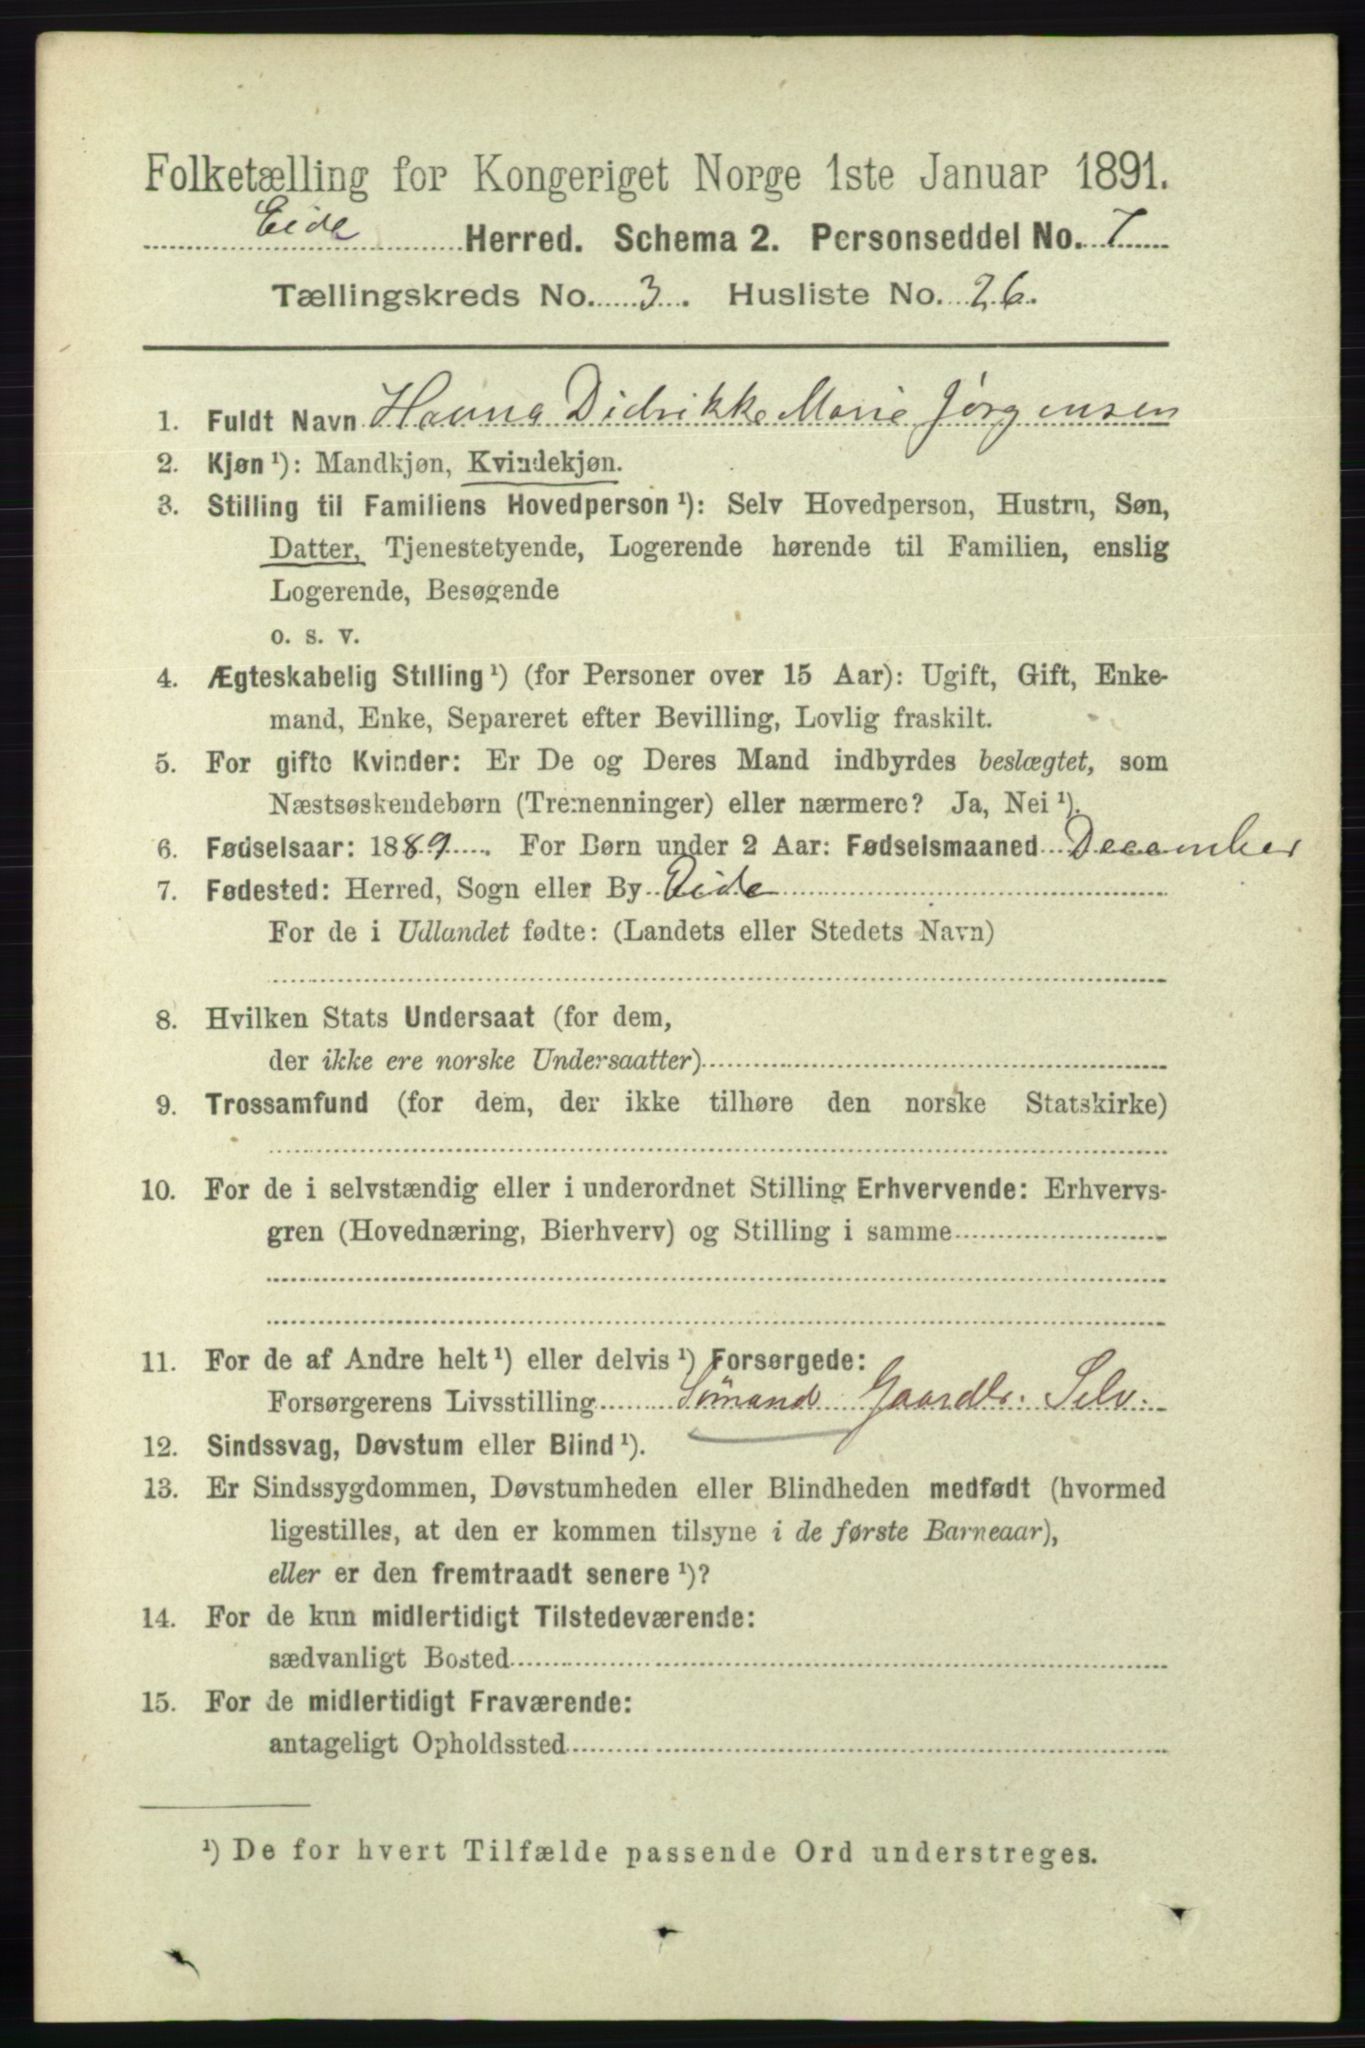 Folketælling for Kongeriget Norge 1ste Januar 1891.
Eide Herred. Schema 2. Personseddel No. 7
Tællingskreds No. 3. Husliste No. 26.
1. Fuldt Navn Hanna Didrikke Marie Jørgensen
2. Kjøn ¹): Mandkjøn, Kvindekjøn.
3. Stilling til Familiens Hovedperson ¹): Selv Hovedperson, Hustru, Søn,
Datter, Tjenestetyende, Logerende hørende til Familien, enslig
Logerende, Besøgende
o. s. v.
4. Ægteskabelig Stilling ¹) (for Personer over 15 Aar): Ugift, Gift, Enke-
mand, Enke, Separeret efter Bevilling, Lovlig fraskilt.
5. For gifte Kvinder: Er De og Deres Mand indbyrdes beslægtet, som
Næstsøskendebørn (Tremenninger) eller nærmere? Ja, Nei ¹).
6. Fødselsaar: 1889. For Børn under 2 Aar: Fødselsmaaned December
7. Fødested: Herred, Sogn eller By Eide
For de i Udlandet fødte: (Landets eller Stedets Navn)
8. Hvilken Stats Undersaat (for dem,
der ikke ere norske Undersaatter)
9. Trossamfund (for dem, der ikke tilhøre den norske Statskirke)
10. For de i selvstændig eller i underordnet Stilling Erhvervende: Erhvervs-
gren (Hovednæring, Bierhverv) og Stilling i samme
11. For de af Andre helt ¹) eller delvis ¹) Forsørgede:
Forsørgerens Livsstilling Sømand Gaardbr. Selv.
12. Sindssvag, Døvstum eller Blind ¹).
13. Er Sindssygdommen, Døvstumheden eller Blindheden medfødt (hvormed
ligestilles, at den er kommen tilsyne i de første Barneaar),
eller er den fremtraadt senere ¹)?
14. For de kun midlertidigt Tilstedeværende:
sædvanligt Bosted
15. For de midlertidigt Fraværende:
antageligt Opholdssted
¹) De for hvert Tilfælde passende Ord understreges.